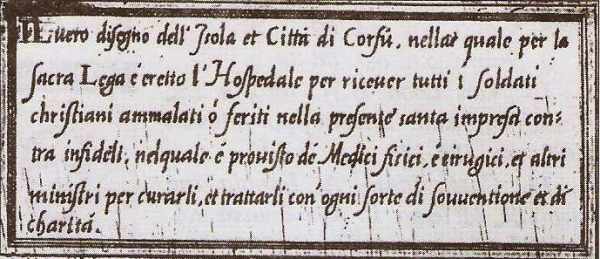 Il vero disegno dell' Isola et Città di Corfù, nella quale per la
sacra Lega è eretto l'Hospedale per riceuer tutti i soldati
christiani ammalati ò feriti nella presente santa impresa con=
tra infideli, nelquale è prouisto de Medici fisici, e cirugici, et altri
ministri per curarli, et trattarli con ogni sorte di souuentione et di
charità.